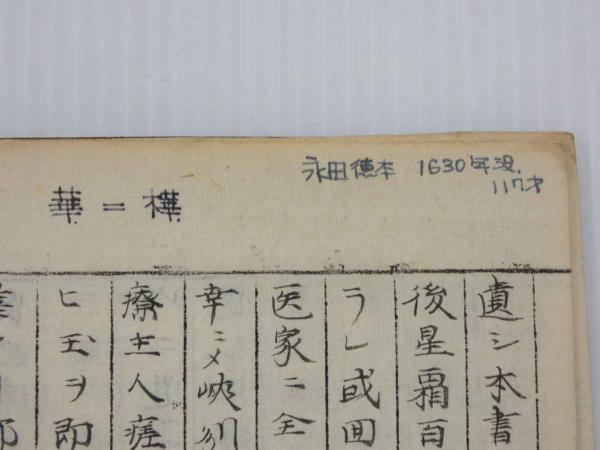 永田徳本 1630年没.
117才
華=樺
遺シ本書
後星霜百
ラレ或囘
医家ニ全
幸ニメ峽刕
療主人瘥
ヒ玉ヲ即